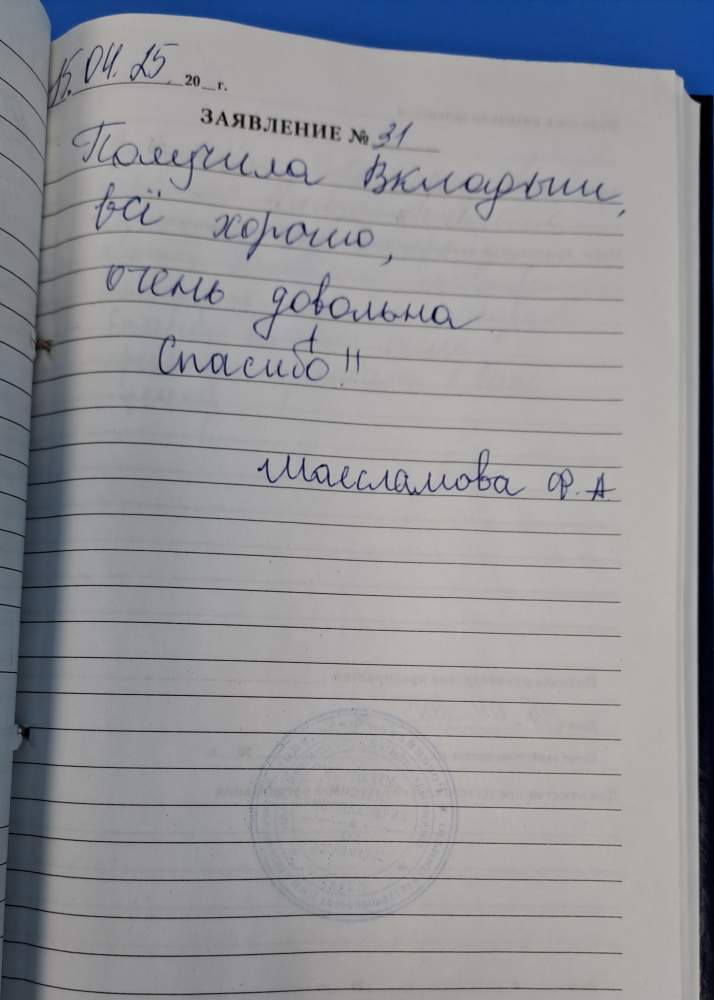 15.04.25 20__г.
ЗАЯВЛЕНИЕ № 31
Получила Вкладыши,
всё хорошо,
очень довольна
Спасибо!!
Ф.А.